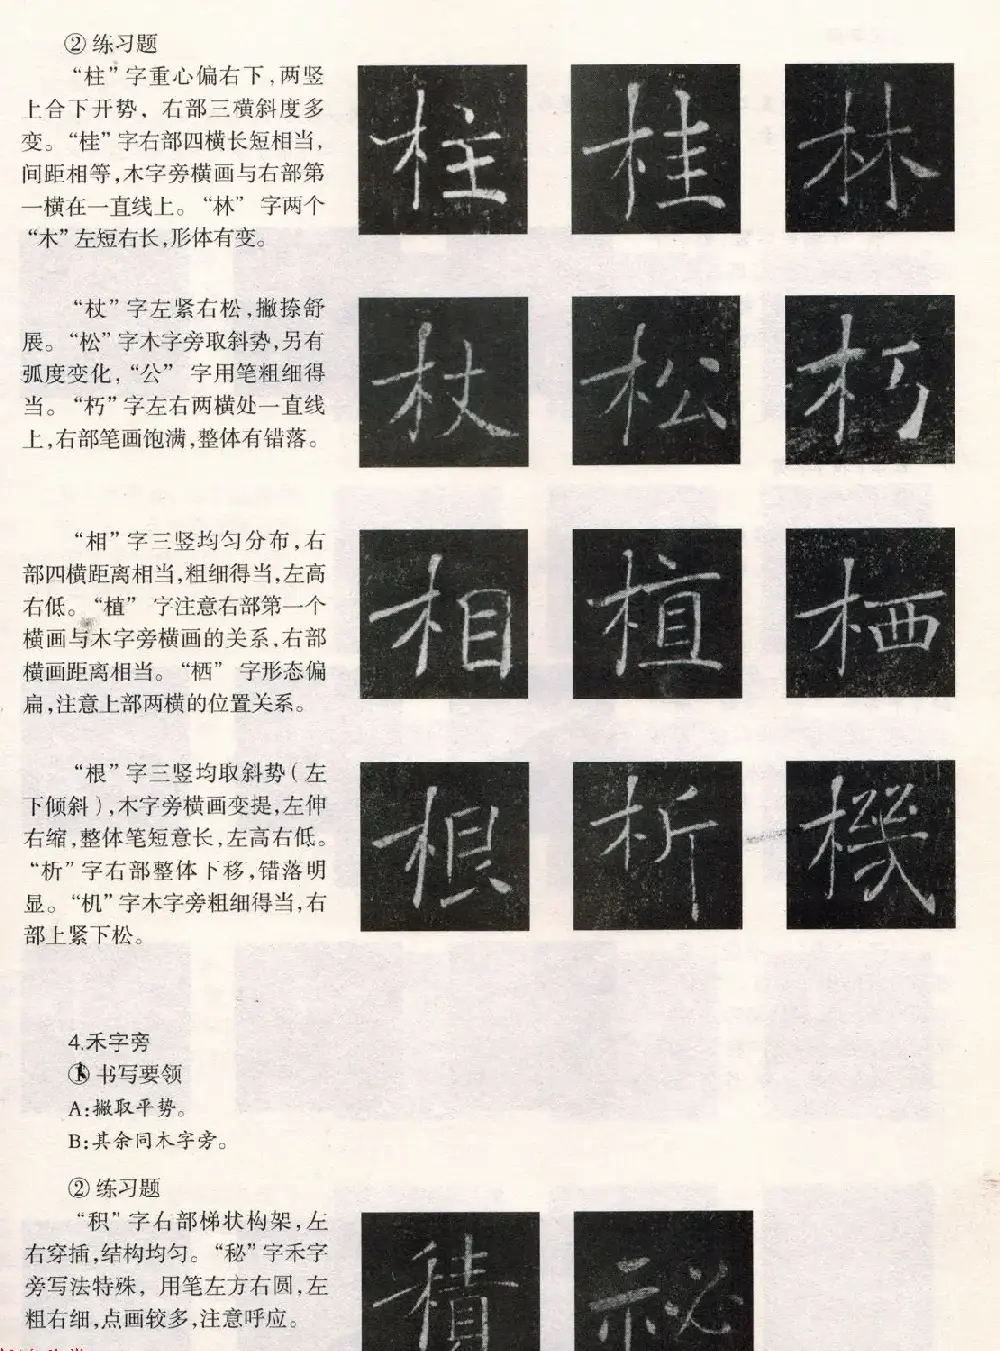 ② 练习题
“柱”字重心偏右下，两竖
上合下开势，右部三横斜度多
变。“桂”字右部四横长短相当，
间距相等，木字旁横画与右部第
一横在一直线上。“林”字两个
“木”左短右长，形体有变。
柱 桂 林
“杖”字左紧右松，撇捺舒
展。“松”字木字旁取斜势，另有
弧度变化，“公”字用笔粗细得
当。“朽”字左右两横处一直线
上，右部笔画饱满，整体有错落。
杖 松 朽
“相”字三竖均匀分布，右
部四横距离相当，粗细得当，左高
右低。“植”字注意右部第一个
横画与木字旁横画的关系，右部
横画距离相当。“栖”字形态偏
扁，注意上部两横的位置关系。
相 植 栖
“根”字三竖均取斜势（左
下倾斜），木字旁横画变提，左伸
右缩，整体笔短意长，左高右低。
“析”字右部整体下移，错落明
显。“机”字木字旁粗细得当，右
部上紧下松。
根 析 機
4.禾字旁
① 书写要领
A：撇取平势。
B：其余同木字旁。
② 练习题
“积”字右部梯状构架，左
右穿插，结构均匀。“秘”字禾字
旁写法特殊，用笔左方右圆，左
粗右细，点画较多，注意呼应。
積 秘